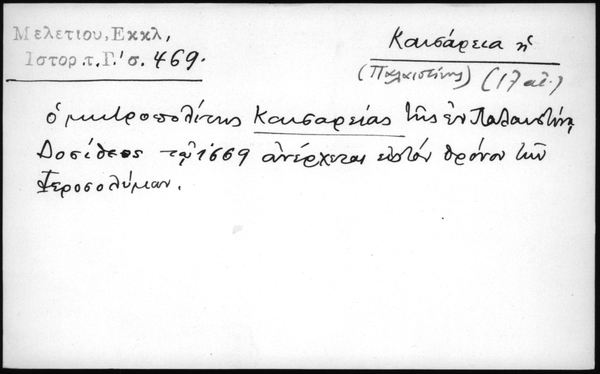 Μελετίου, Εκκλ,
Ιστορ.τ.Γ.'σ. 469.
Καισάρεια ἡ
(Παλαιστίνης) (17 αἰ.)
ὁ μητροπολίτης Καισαρείας τῆς ἐν Παλαιστίνῃ
Δοσίθεος τῷ 1669 ἀνέρχεται εἰς τόν θρόνον τῶν
Ἱεροσολύμων.